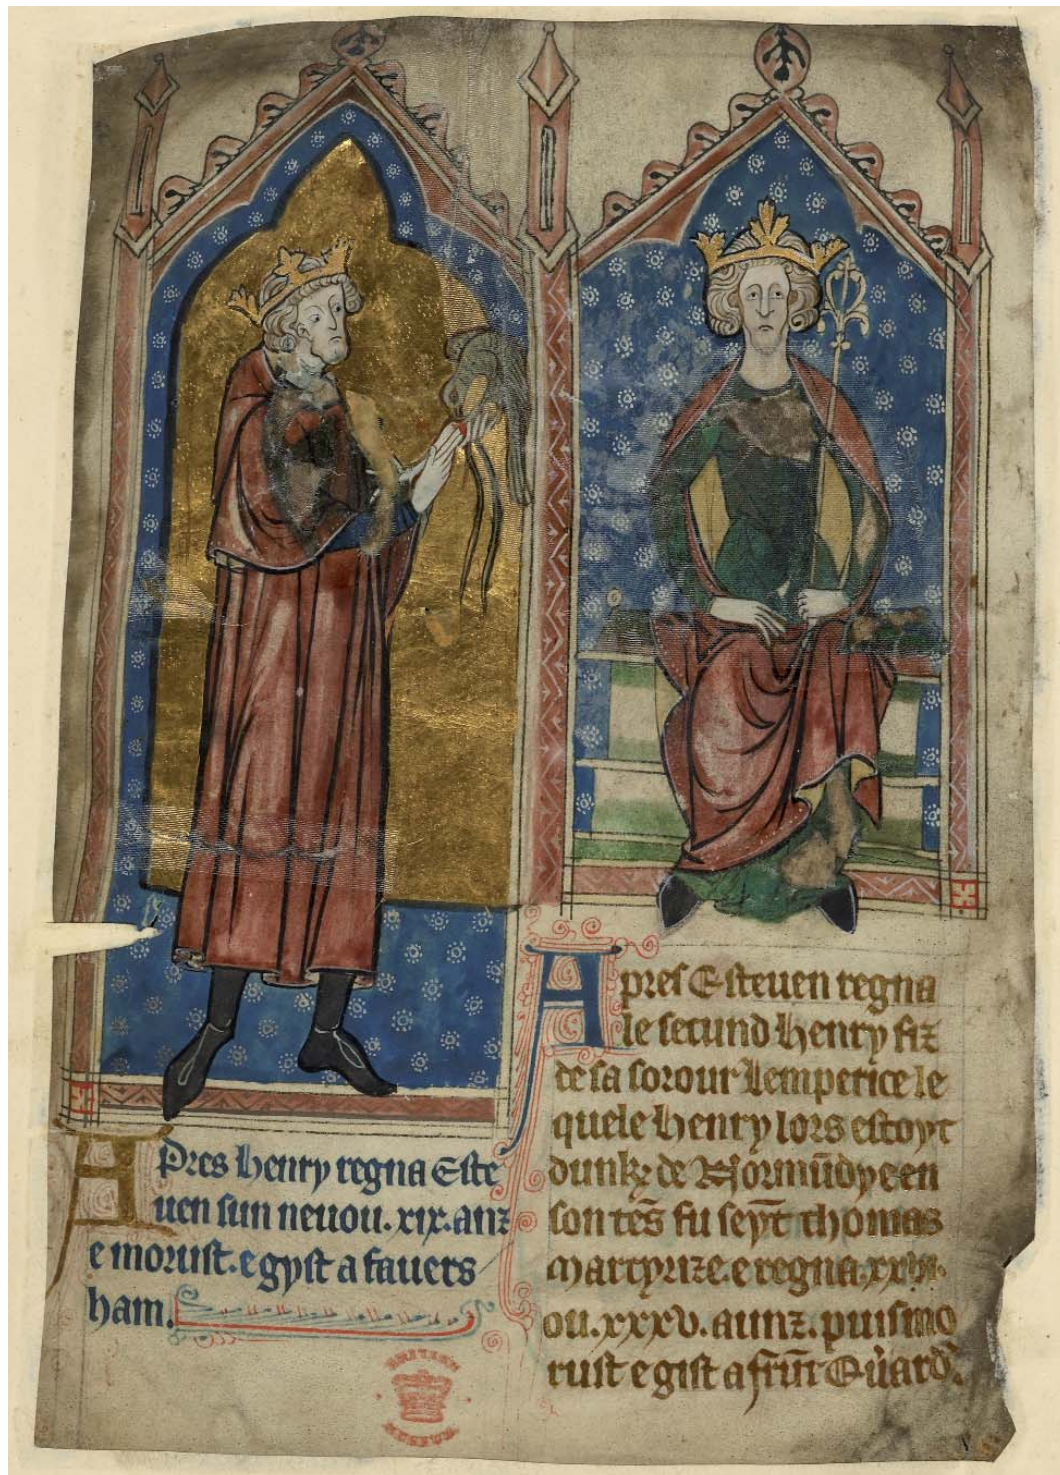 Apres henry regna Este
uen sun neuou .xix. anz
e morust. e gyst a fauers
ham.
Apres Esteuen regna
le secund henry fiz
de sa sorour Lemperice le
quele henry lors estoyt
dunk de Normūdye en
son tēs fu seyt thomas
martyrize. e regna
ou .xxxv. aunz. puis mo
rust e gist a
BRITISH
MUSEUM